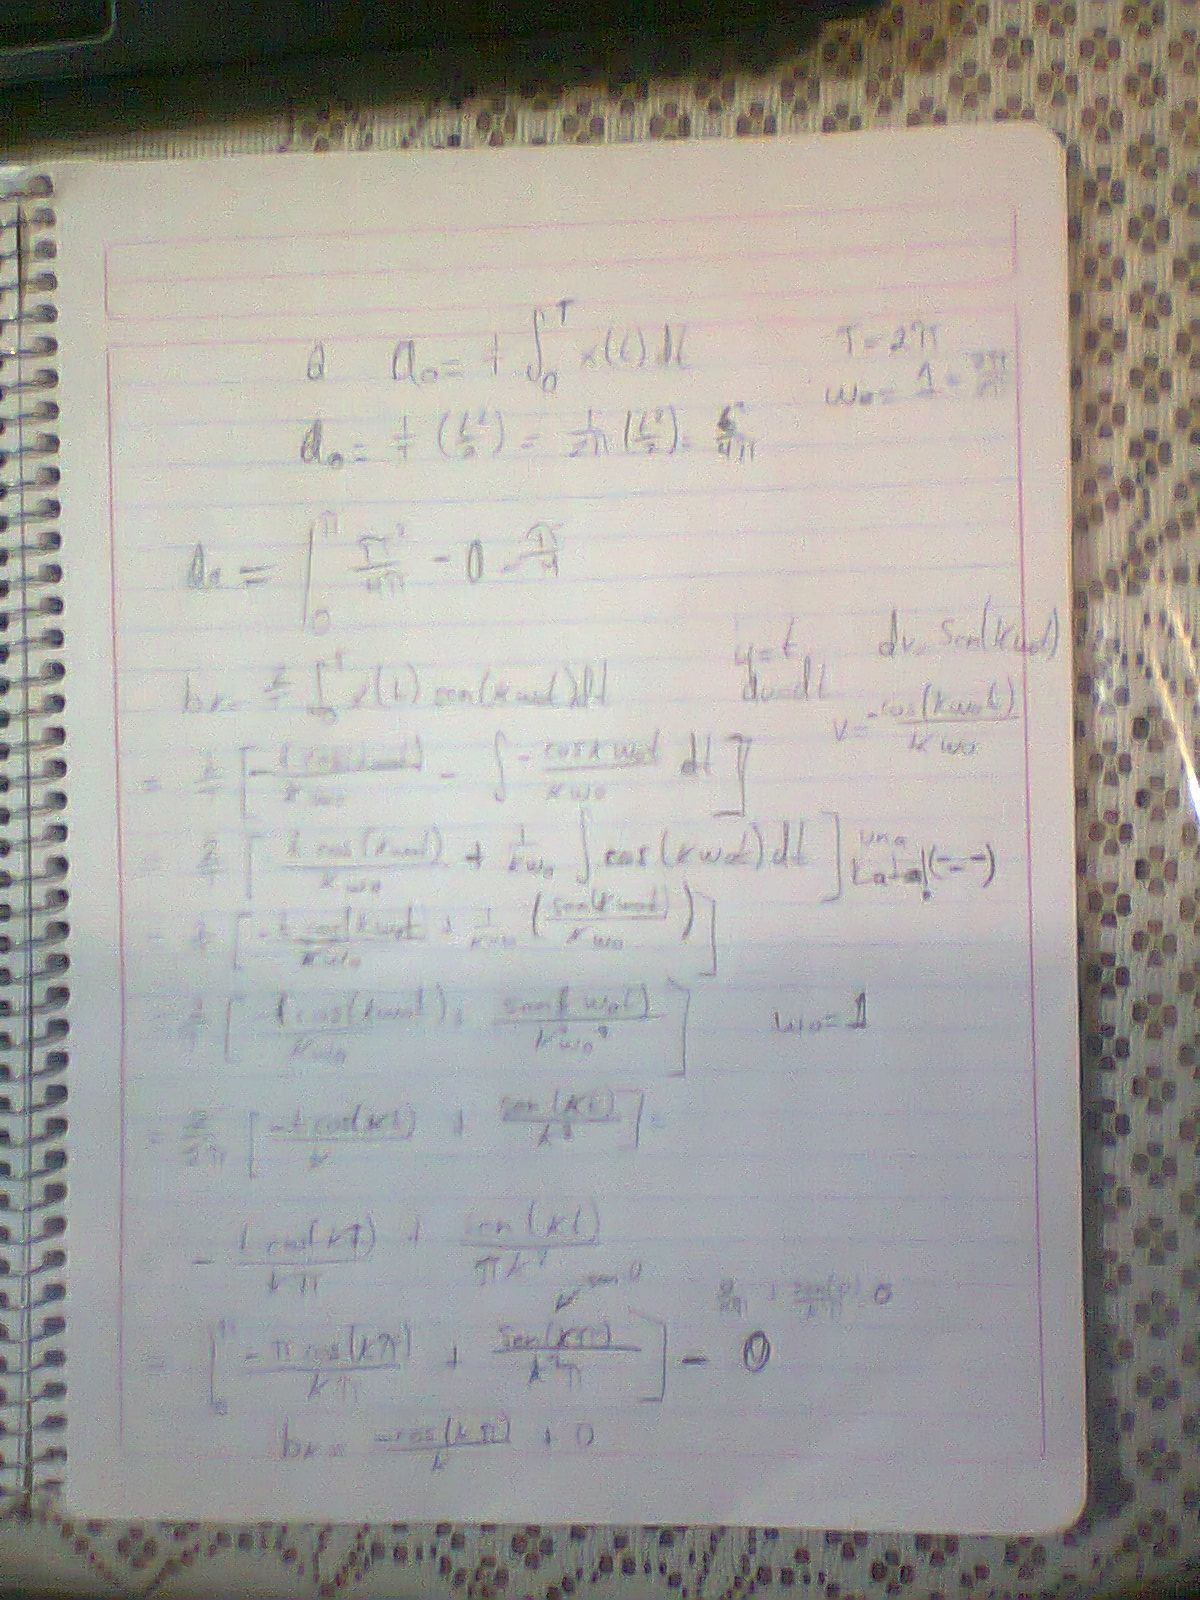 a₀ = 1/T ∫₀ᵀ x(t) dt
T = 2π
ω₀ = 1 = 2π/2π
a₀ = 1/T (t²/2) = 1/2π (t²/2) = t²/4π
a₀ = |₀^π π²/4π - 0 = π/4
bₖ = 2/T ∫₀ᵀ x(t) sen(kω₀t) dt
u = t dv = sen(kω₀t)
du = dt v = -cos(kω₀t)/kω₀
= 2/T [ -t cos(kω₀t)/kω₀ - ∫ -cos kω₀t/kω₀ dt ]
= 2/T [ t cos(kω₀t)/kω₀ + 1/kω₀ ∫ cos(kω₀t) dt ] una kata! (-.-)
= 2/T [ -t cos(kω₀t)/kω₀ + 1/kω₀ (sen(kω₀t)/kω₀) ]
= 2/T [ -t cos(kω₀t)/kω₀ + sen(kω₀t)/k²ω₀² ] ω₀ = 1
= 2/2π [ -t cos(kt)/k + sen(kt)/k² ] =
- t cos(kt)/kπ + sen(kt)/πk²
= [₀^π -π cos(kπ)/kπ + sen(kπ)/k²π ] - 0
bₖ = -cos(kπ)/k + 0